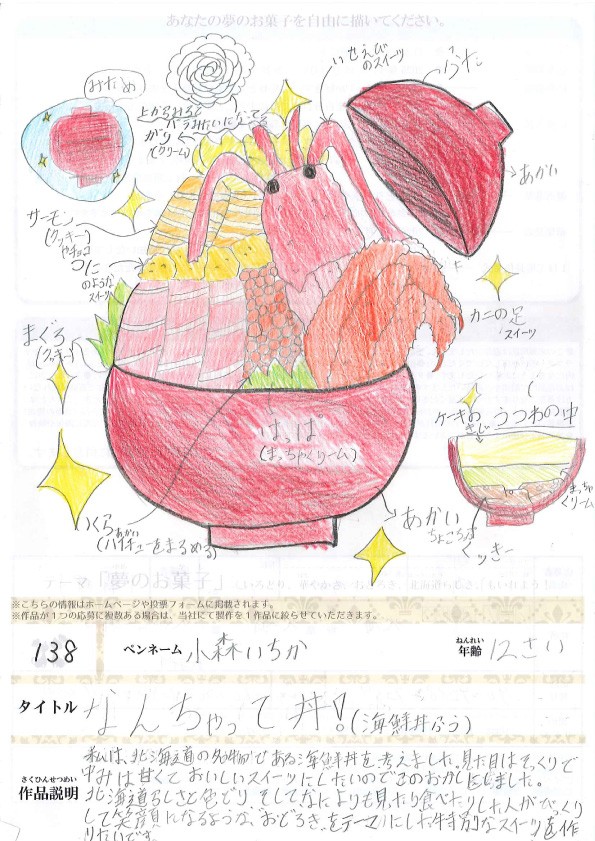 あなたの夢のお菓子を自由に描いてください。
おため
上からみると
バラみたいになってる
がり
(クリーム)
いせえびのスイーツ
ふた
あかい
サーモン
(クッキー)
やチョコ
うに
のような
スイーツ
まぐろ
(クッキー)
カニの足
スイーツ
はっぱ
(まっちゃくリーム)
ケーキの
きじ
うつわの中
まっちゃ
くリーム
クッキー
いくら
あかい
(ハイチュウをまるめる)
あかい
ちょこらか
テーマ「夢のお菓子」
※こちらの情報はホームページや投票フォームに掲載されます。
※作品が1つの応募に複数ある場合は、当社にて製作を1作品に絞らせていただきます。
138
ペンネーム 小森いちか
ねんれい
年齢 12さい
タイトル なんちゃって丼!(海鮮丼ふう)
さくひんせつめい
作品説明
私は、北海道の名物である海鮮丼を考えました。見た目はそっくりで
中みは甘くておいしいスイーツにしたいのでこのおかしにしました。
北海道らしさと色どり、そしてなによりも見たり食べたりした人がびっくり
して笑顔になるような、おどろきをテーマにした特別なスイーツを作
りたいです。